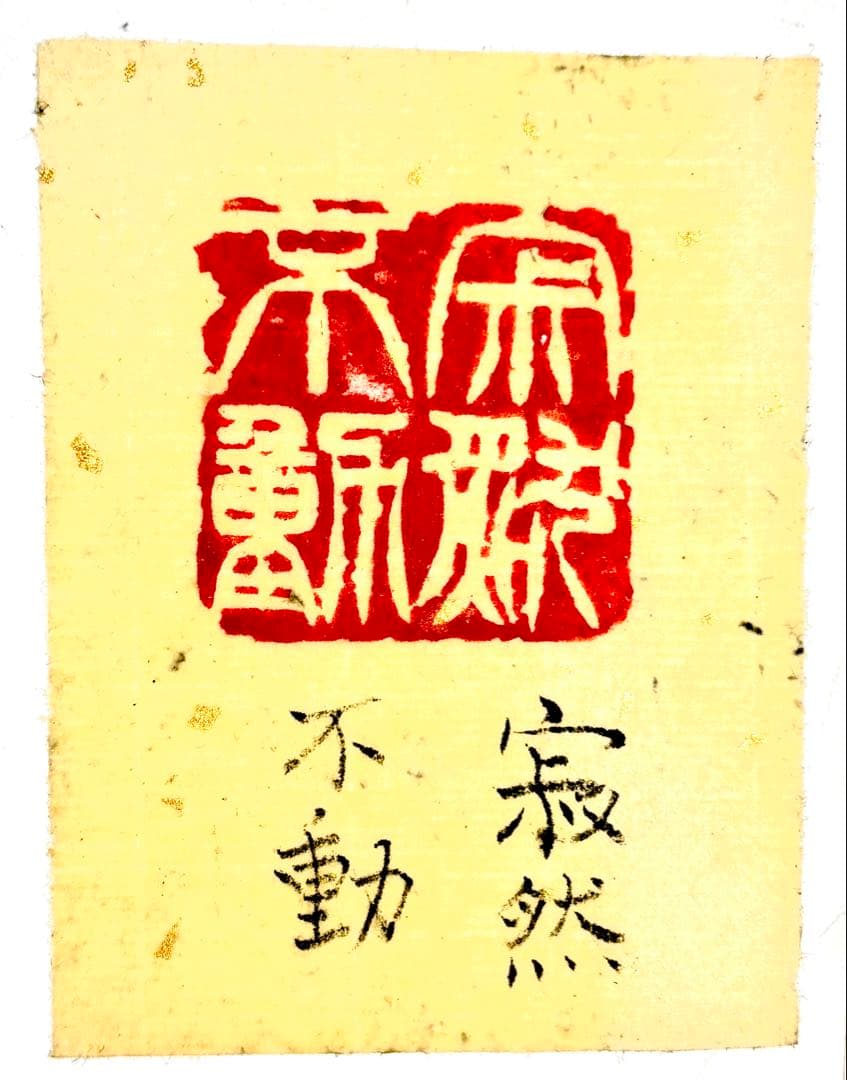 寂然
不動
寂然
不動